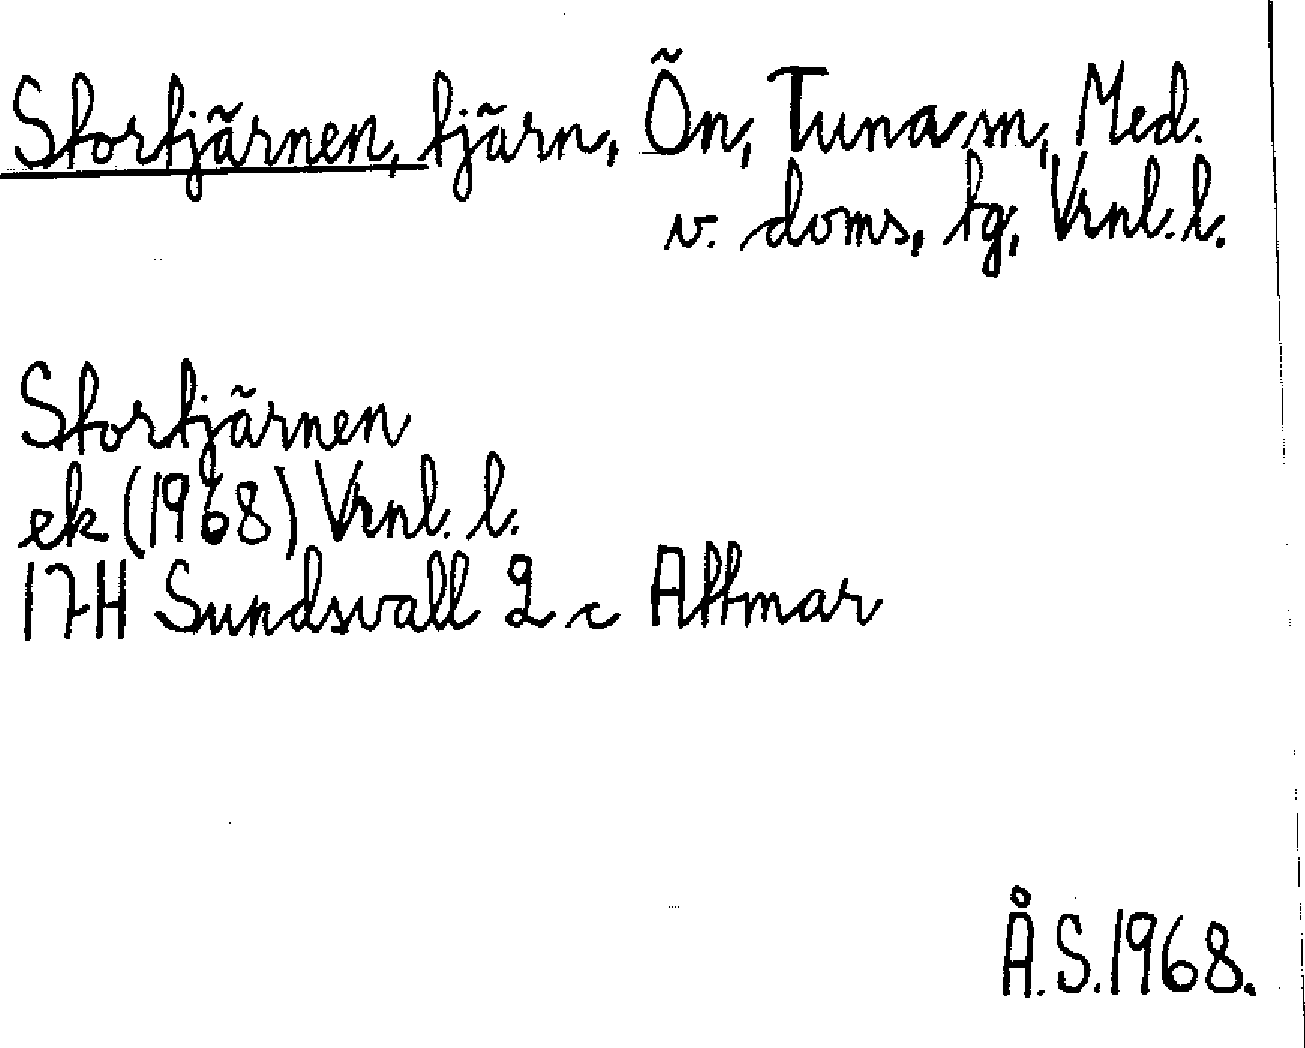 Stortjärnen, tjärn, Ön, Tuna sn, Med.
v. doms, tg, Vrnl. l.
Stortjärnen
ek (1968) Vrnl. l.
17H Sundsvall 2 c Attmar
Å.S. 1968.